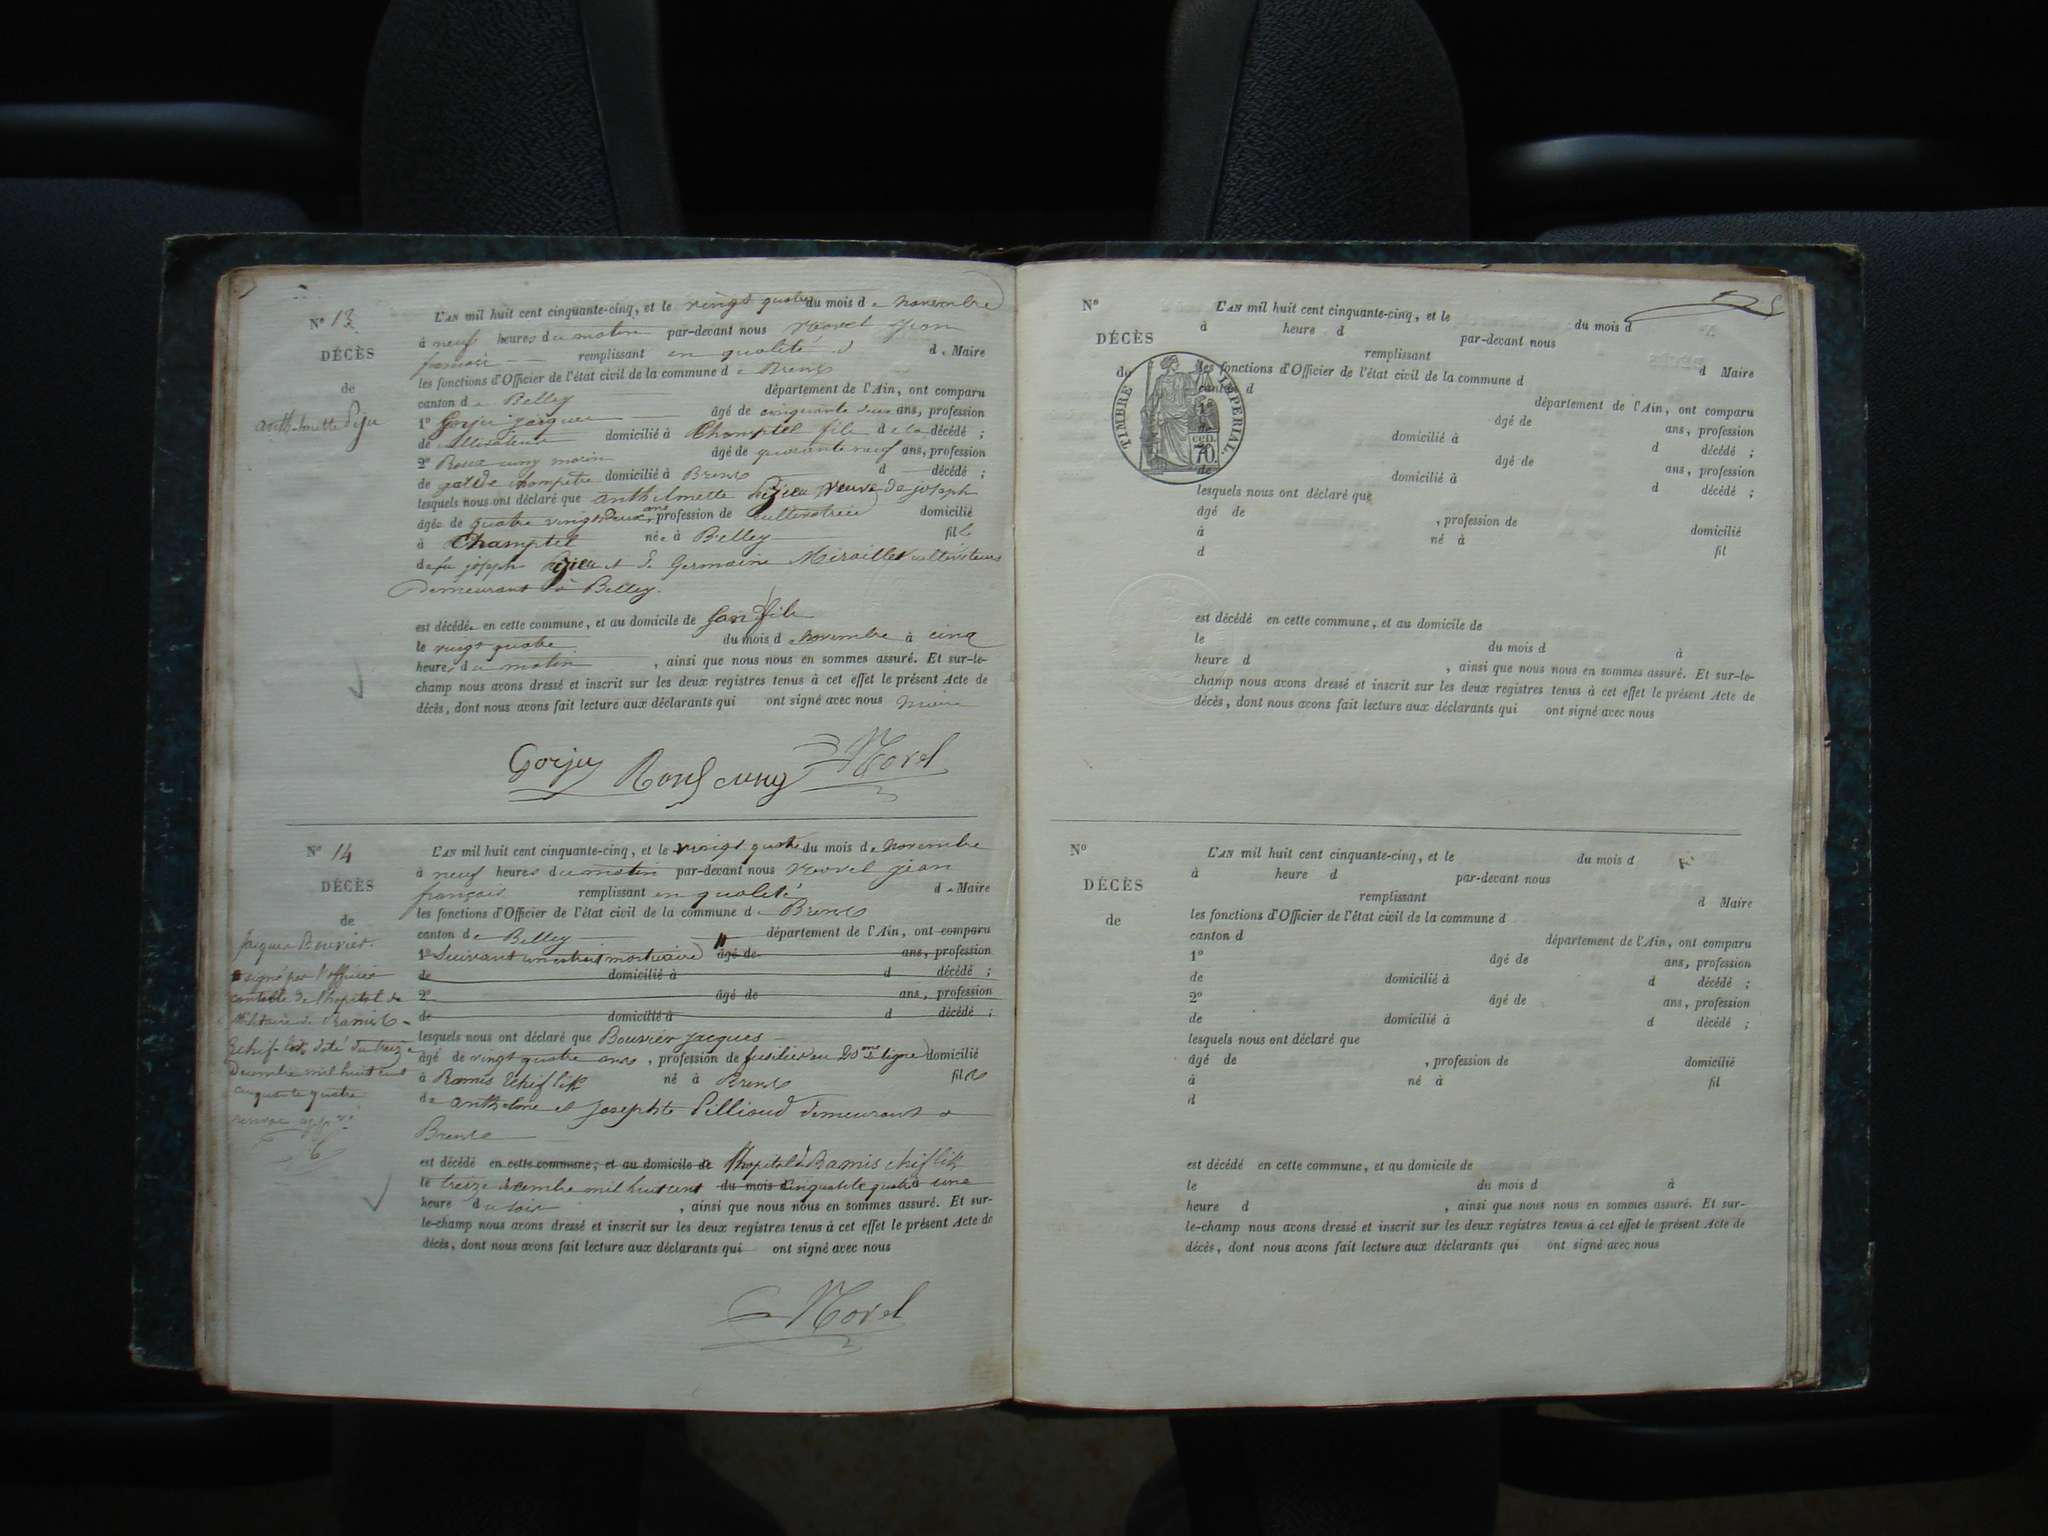 N° 13
DÉCÈS
de
L'AN mil huit cent cinquante-cinq, et le vingt quatre du mois de novembre
à neuf heures du matin par-devant nous Morel jean
françois remplissant en qualité d de Maire
les fonctions d'Officier de l'état civil de la commune de Brens
canton de Belley département de l'Ain, ont comparu
1° Gorju jacques âgé de cinquante deux ans, profession
de cultivateur domicilié à Champtel fils de la décédé ;
2° Roux cuny âgé de quarante neuf ans, profession
de garde champêtre domicilié à Brens d décédé ;
lesquels nous ont déclaré que anthelmette veuve de joseph
âgée de quatre vingt deux ans, profession de cultivatrice domicilié
à Champtel née à Belley fille
de feu joseph et de Germaine cultivateurs
Demeurant à Belley.
est décédée en cette commune, et au domicile de son fils
le vingt quatre du mois de novembre à cinq
heures du matin , ainsi que nous nous en sommes assuré. Et sur-le-
champ nous avons dressé et inscrit sur les deux registres tenus à cet effet le présent Acte de
décès, dont nous avons fait lecture aux déclarants qui ont signé avec nous maire
Gorju Roux cuny Morel
N° 14
DÉCÈS
de
Jacques Bouvier.
signé par l'officier
comptable de l'hopital
Militaire de Ramis
Tchif-lik daté du treize
Decembre mil huit cent
cinquante quatre
L'AN mil huit cent cinquante-cinq, et le vingt quatre du mois de novembre
à neuf heures du matin par-devant nous Morel jean
françois remplissant en qualité de Maire
les fonctions d'Officier de l'état civil de la commune de Brens
canton de Belley département de l'Ain, ont comparu
1° Suivant un extrait mortuaire âgé de ans, profession
de domicilié à d décédé ;
2° âgé de ans, profession
de domicilié à d décédé ;
lesquels nous ont déclaré que Bouvier Jacques
âgé de vingt quatre ans , profession de fusilier au 20me de ligne domicilié
à Ramis Tchiflik né à Brens fils
de anthelme et Josephte Pillioud demeurant à
Brens
est décédé en cette commune, et au domicile de l'hopital de Ramis chiflik
le treize decembre mil huit cent du mois d cinquante quatre à une
heure du soir , ainsi que nous nous en sommes assuré. Et sur-
le-champ nous avons dressé et inscrit sur les deux registres tenus à cet effet le présent Acte de
décès, dont nous avons fait lecture aux déclarants qui ont signé avec nous
Morel
N°
DÉCÈS
de
TIMBRE IMPÉRIAL
cen.
70.
L'AN mil huit cent cinquante-cinq, et le du mois d
à heure d par-devant nous
remplissant d Maire
les fonctions d'Officier de l'état civil de la commune d
canton d département de l'Ain, ont comparu
âgé de ans, profession
domicilié à d décédé ;
âgé de ans, profession
de domicilié à d décédé ;
lesquels nous ont déclaré que
âgé de , profession de domicilié
à né à fil
d
est décédé en cette commune, et au domicile de
le du mois d à
heure d , ainsi que nous nous en sommes assuré. Et sur-le-
champ nous avons dressé et inscrit sur les deux registres tenus à cet effet le présent Acte de
décès, dont nous avons fait lecture aux déclarants qui ont signé avec nous
N°
DÉCÈS
de
L'AN mil huit cent cinquante-cinq, et le du mois d
à heure d par-devant nous
remplissant d Maire
les fonctions d'Officier de l'état civil de la commune d
canton d département de l'Ain, ont comparu
1° âgé de ans, profession
de domicilié à d décédé ;
2° âgé de ans, profession
de domicilié à d décédé ;
lesquels nous ont déclaré que
âgé de , profession de domicilié
à né à fil
d
est décédé en cette commune, et au domicile de
le du mois d à
heure d , ainsi que nous nous en sommes assuré. Et sur-
le-champ nous avons dressé et inscrit sur les deux registres tenus à cet effet le présent Acte de
décès, dont nous avons fait lecture aux déclarants qui ont signé avec nous